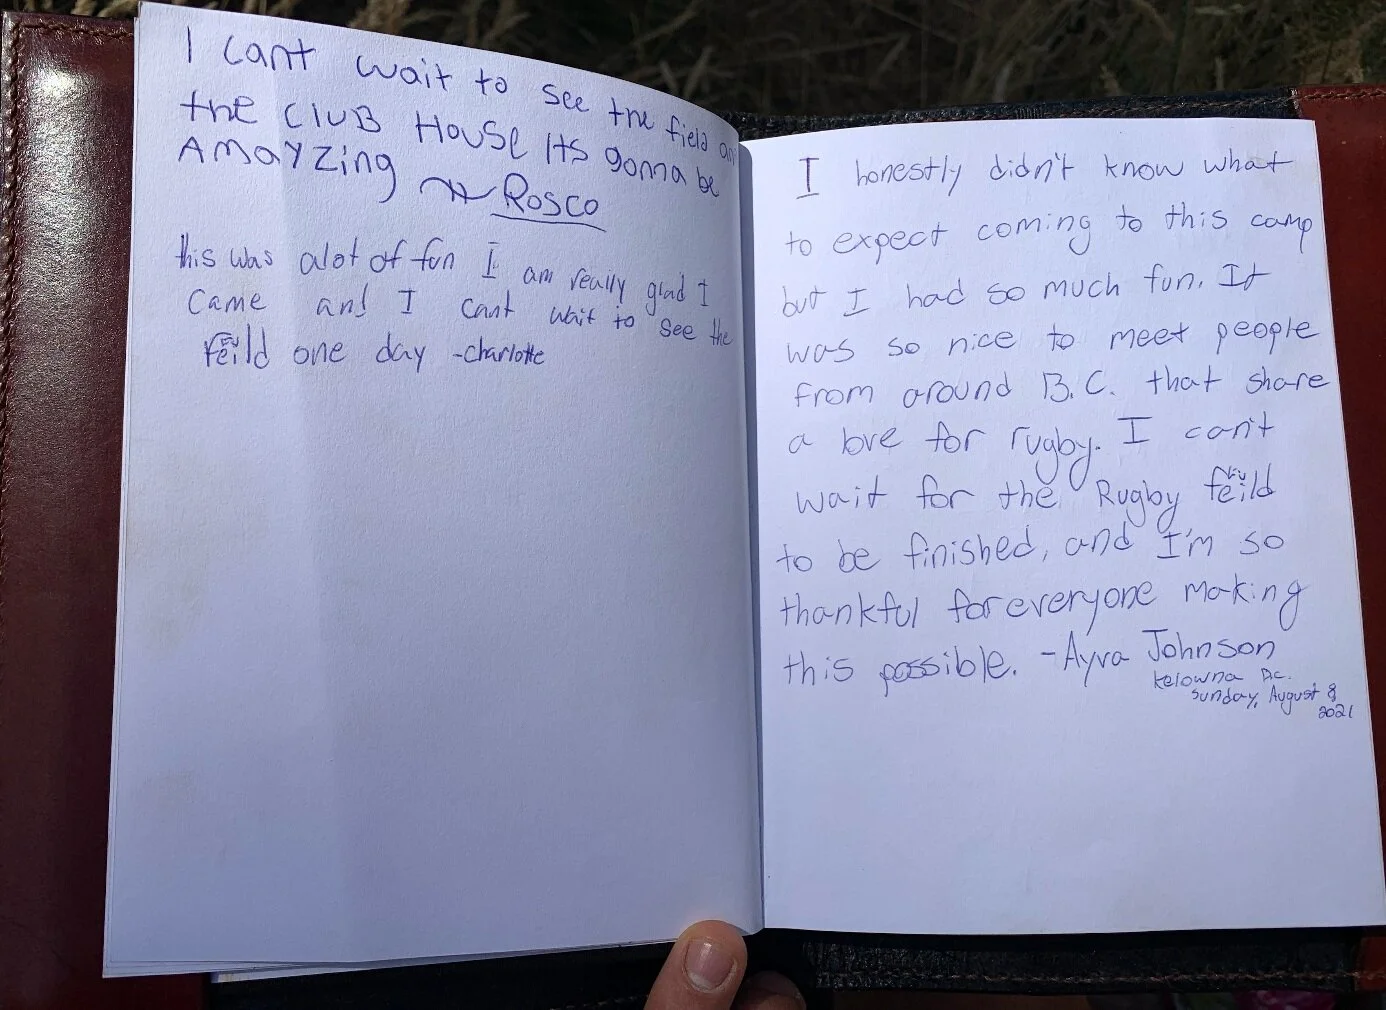 I cant wait to see the field an
the CLUB HOUSE Its gonna be
AMAYZing ~ Rosco
this was alot of fun I am really glad I
came and I cant wait to see the
feild one day -charlotte
I honestly didn't know what
to expect coming to this camp
but I had so much fun. It
was so nice to meet people
from around B.C. that share
a love for rugby. I can't
wait for the Rugby feild
to be finished, and I'm so
thankful for everyone making
this possible. -Ayva Johnson
Kelowna Bc.
Sunday, August 8
2021